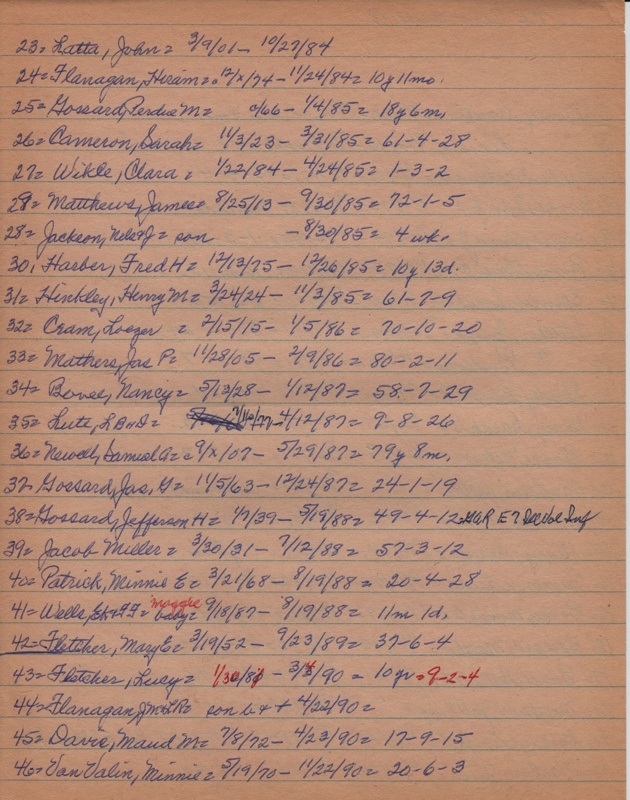 23= Latta, John = 3/9/01 - 10/27/84
24= Flanagan, Hiram = c 12/x/74 - 11/24/84 = 10y 11mo.
25= Gossard, Perdie M = c/66 - 1/4/85 = 18y 6m,
26= Cameron, Sarah = 11/3/23 - 3/31/85 = 61-4-28
27= Wikle, Clara = 1/22/84 - 4/24/85 = 1-3-2
29= Matthews, James = 8/25/13 - 9/30/85 = 72-1-5
28= Jackson, Nels & J = son - 8/30/85 = 4 wk.
30, Harber, Fred H = 12/13/75 - 12/26/85 = 10y 13d.
31= Hinkley, Henry M = 3/24/24 - 11/3/85 = 61-7-9
32= Cram, Loezer = 2/15/15 - 1/5/86 = 70-10-20
33= Mathers, Jas P = 11/28/05 - 2/9/86 = 80-2-11
34= Bovee, Nancy = 5/13/28 - 1/12/87 = 58-7-29
35= Lute, L B = 4/12/87 = 9-8-26
36= Newell, Samuel A = c 9/x/07 - 5/29/87 = 79y 8m,
37= Gossard, Jas, G = 11/5/63 - 12/24/87 = 24-1-19
38= Gossard, Jefferson H = 1/7/39 - 5/19/88 = 49-4-12 = GAR E 7 Vol Inf
39= Jacob Miller = 3/30/31 - 7/12/88 = 57-3-12
40= Patrick, Minnie E = 3/21/68 - 8/19/88 = 20-4-28
41= Wells, = maggie baby = 9/18/87 - 8/19/88 = 11m 1d,
42= Fletcher, Mary E = 3/19/52 - 9/23/89 = 37-6-4
43= Fletcher, Lucy = - 3/4/90 = 10yr = 9-2-4
44= Flanagan, = son b & + 4/22/90 =
45= Davis, Maud M = 7/8/72 - 4/23/90 = 17-9-15
46= Van Valin, Minnie = 5/19/70 - 11/22/90 = 20-6-3